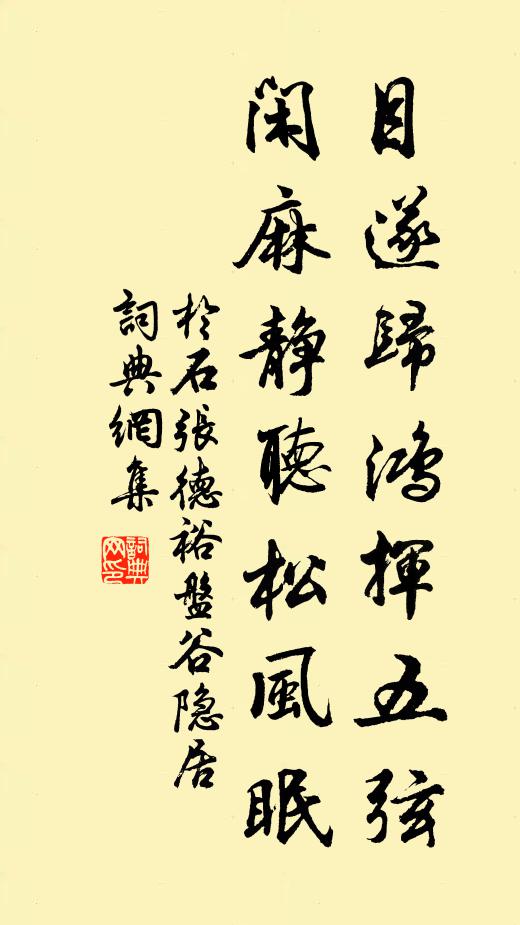 目遂歸鴻揮五弦
閑麻静聽松風眠
於石張德裕盤谷隐居
詞典網集
詞典网印